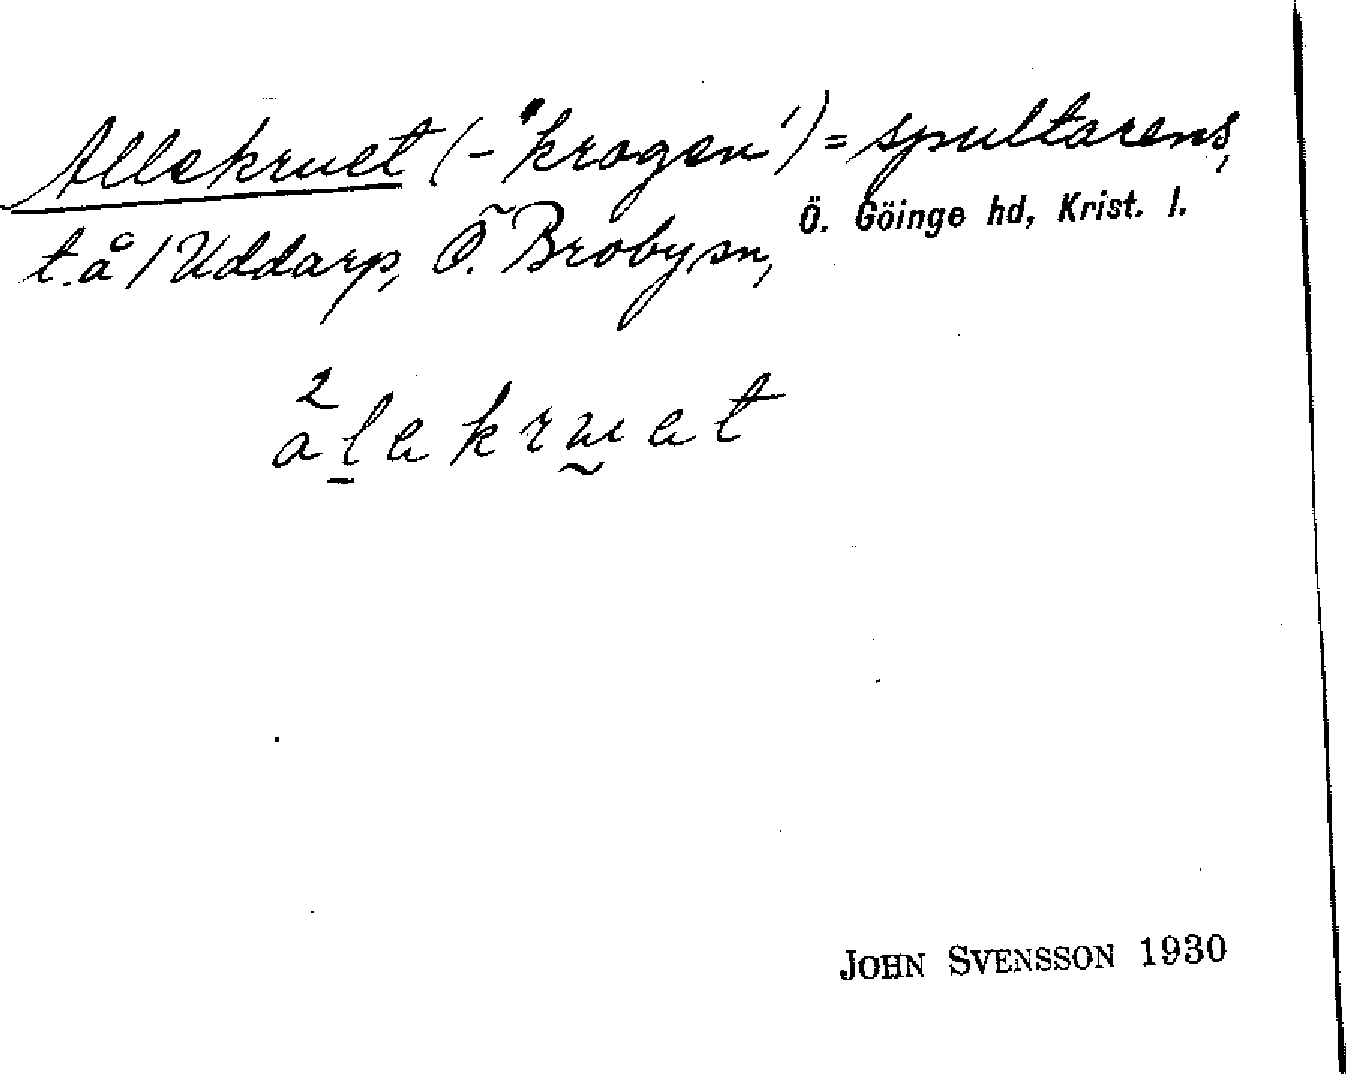 Allekruet (-"krogen") = spultarens,
t.å / Uddarp, Ö. Broby sn, Ö. Göinge hd, Krist. l.
2
alekruet
JOHN SVENSSON 1930